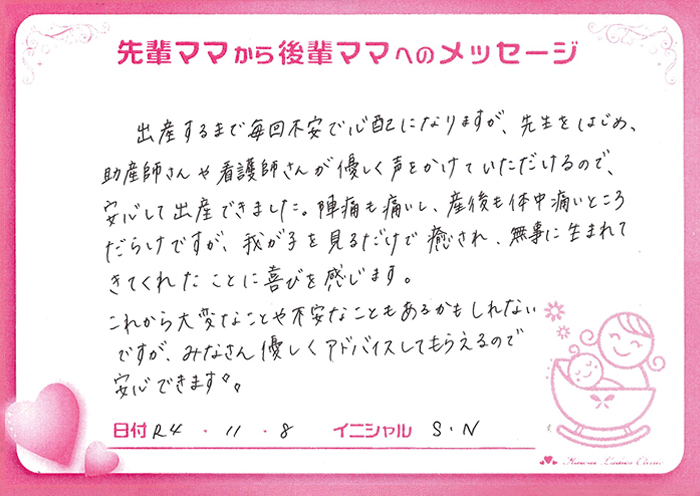 先輩ママから後輩ママへのメッセージ
出産するまで毎回不安で心配になりますが、先生をはじめ、
助産師さんや看護師さんが優しく声をかけていただけるので、
安心して出産できました。陣痛も痛いし、産後も体中痛いところ
だらけですが、我が子を見るだけで癒され、無事に生まれて
きてくれたことに喜びを感じます。
これから大変なことや不安なこともあるかもしれない
ですが、みなさん優しくアドバイスしてもらえるので
安心できます。
日付 R4・11・8 イニシャル S・N
Ladies Clinic